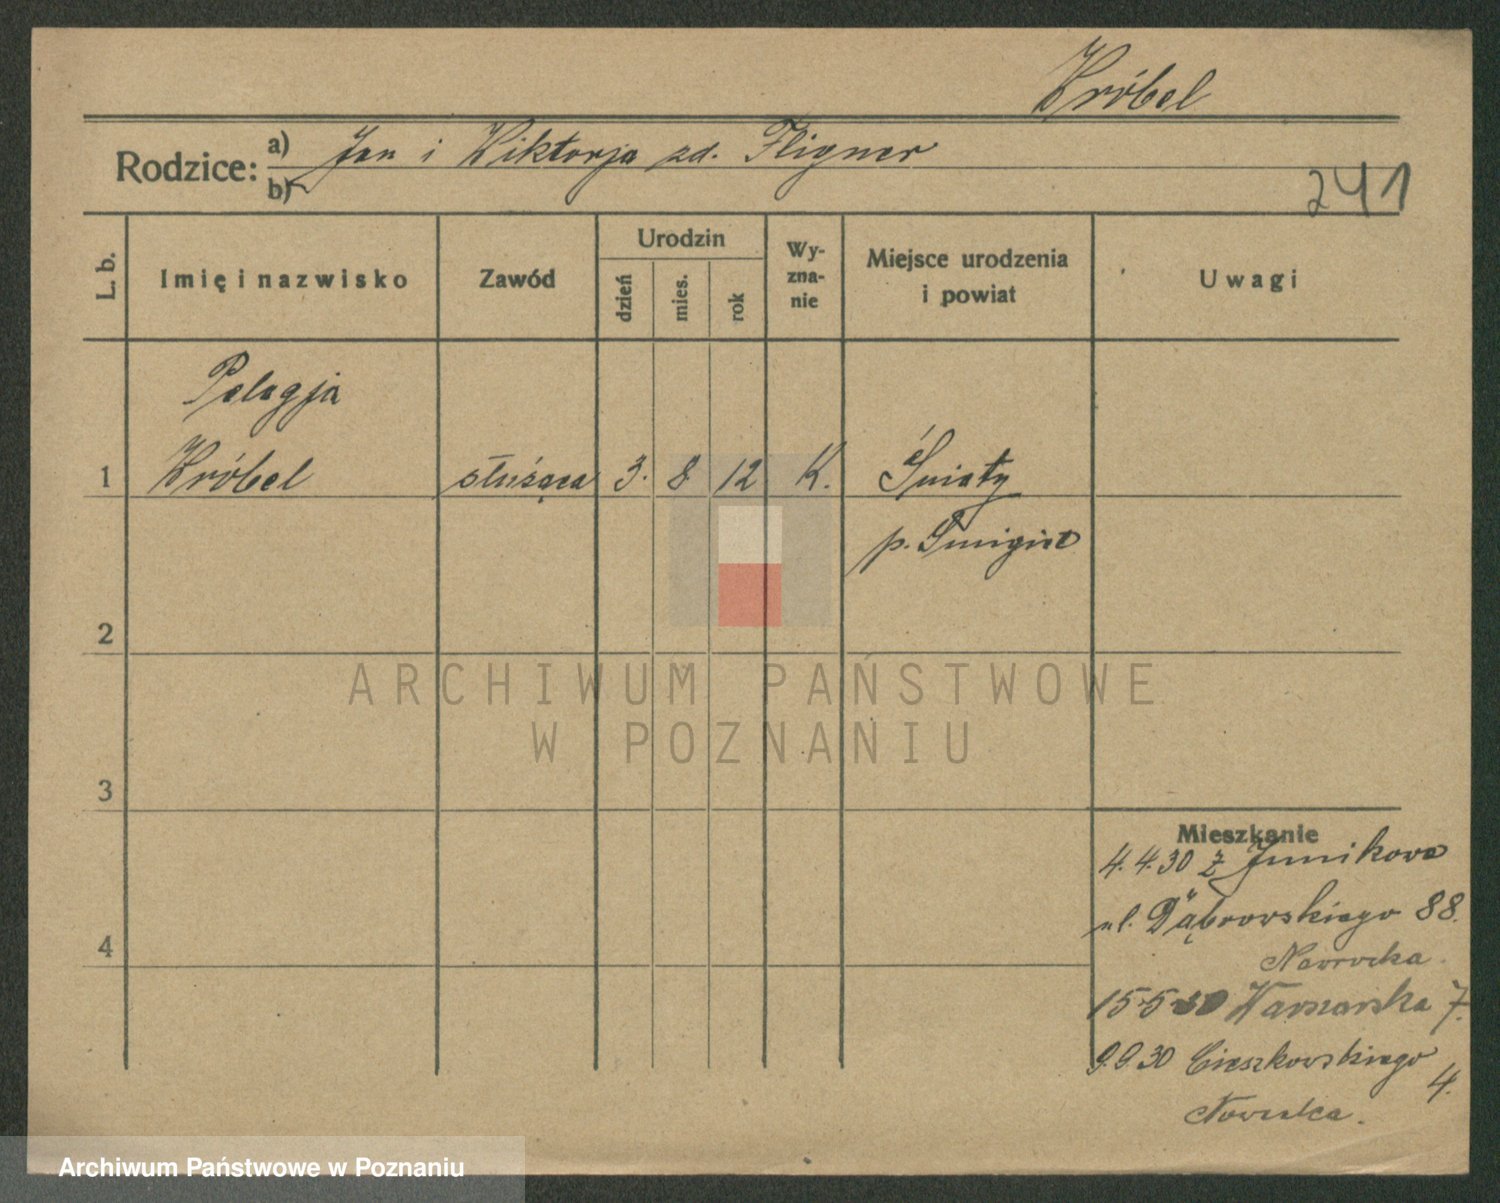 Wróbel
Rodzice: a) Jan i Wiktorja zd. Fligner
b)
241
L. b.
Imię i nazwisko
Zawód
Urodzin
dzień
mies.
rok
Wy-
zna-
nie
Miejsce urodzenia
i powiat
Uwagi
Pelagja
1 Wróbel służąca 3. 8 12 K. Śniaty
p. Śmigiel
2
3
4
ARCHIWUM PAŃSTWOWE
W POZNANIU
Mieszkanie
4.4.30 z Junikowa
ul. Dąbrowskiego 88.
Nawrocka.
15-5-30 Warszawska 7.
9.9.30 Cieszkowskiego
4.
Archiwum Państwowe w Poznaniu